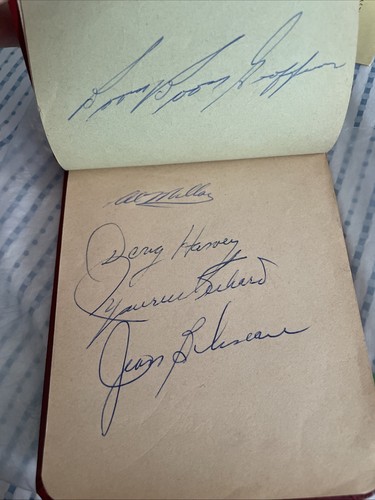 Boom Boom Geoffrion
Al Millar
Doug Harvey
Maurice Richard
Jean Béliveau